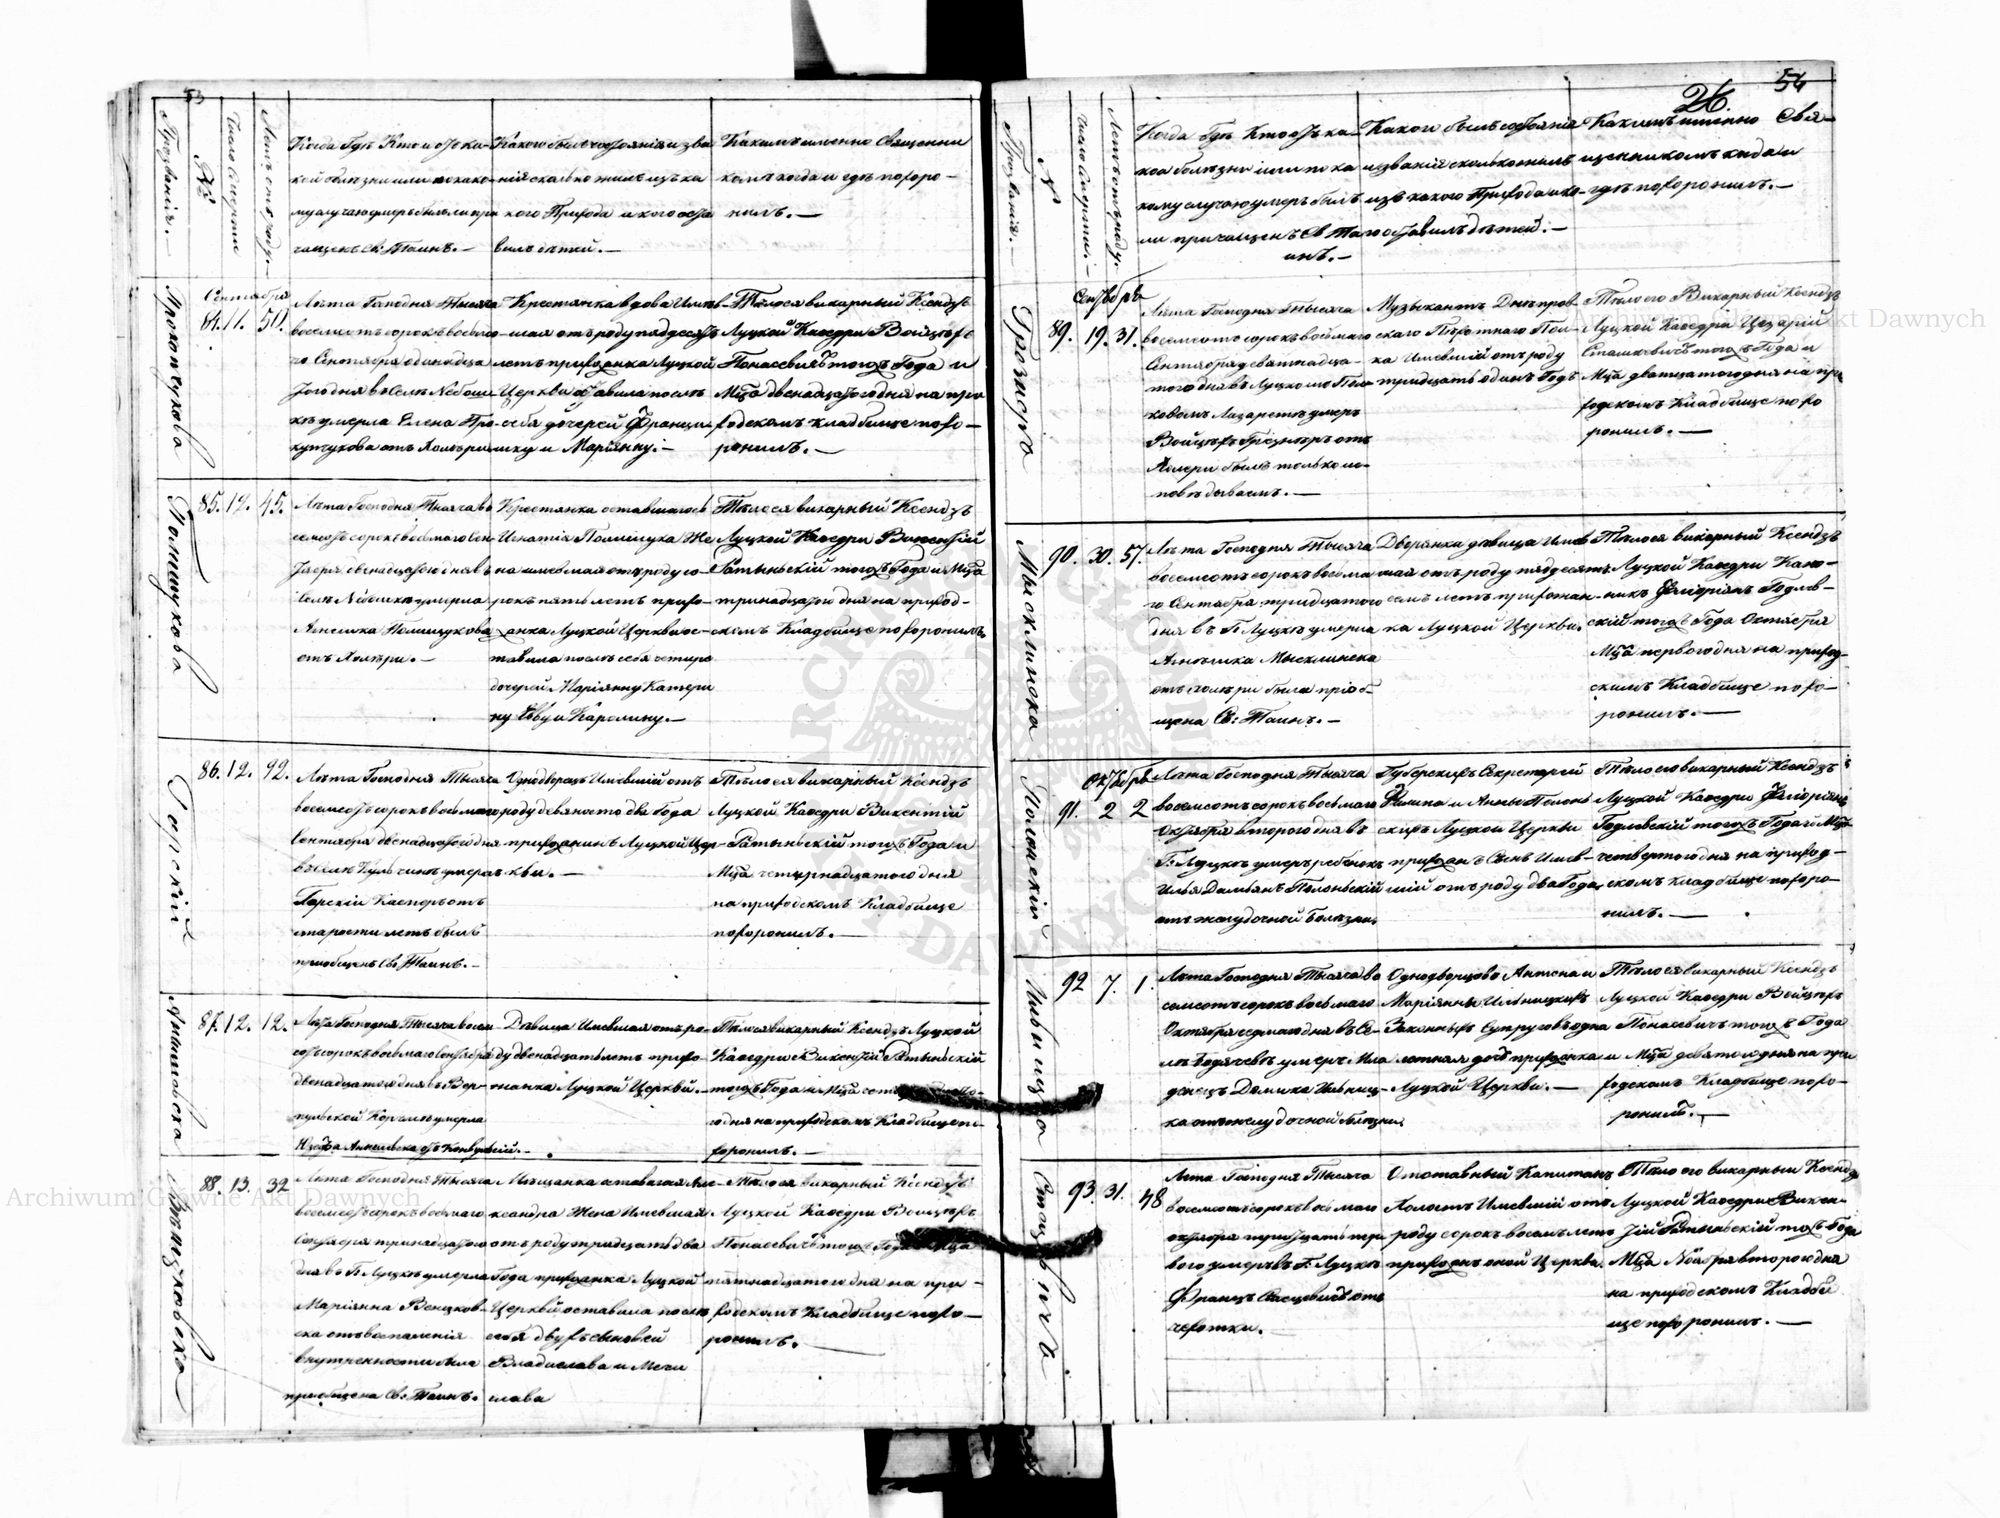 53
Прозванія.
№
Число Смерти
Летъ отъ роду.
Когда Где Кто и отъ ка-
кой болезни или по како-
му случаю умеръ былъ ли при
чащенъ Св: Таинъ.
Какого былъ состоянія и зва
нія сколько жилъ изъ ка
кого Прихода и кого оста
вилъ детей.
Какимъ именно Священни
комъ когда и где похоро-
нилъ.
Прокопчукова
Сентября
84. 11. 50.
Лета Господня Тысяча
восемсотъ сорокъ восьма
го Сентября одинадца
того дня въ Селе Небоже
ке умерла Елена Про-
копчукова отъ Холеры
Крестянка вдова Имев-
шая отъ роду пядесятъ
летъ прихожанка Луцкой
Церкви оставила после
себя дочерей Франци
шку и Маріянну.
Тело ея викарный Ксендзъ
Луцкой Кафедры Войцехъ
Понасевичъ тогожъ Года и
Мца двенадцатого дня на при
ходскомъ кладбище похо-
ронилъ.
Полищукова
85. 12. 45.
Лета Господня Тысяча во
семсотъ сорокъ восьмаго Сен
тября двенадцатого дня въ
Селе Небожке умерла
Агнешка Полищукова
отъ Холеры.
Крестянка оставшагося
Игнатія Полищука Же
на имевшая отъ роду со-
рокъ пять летъ прихо-
жанка Луцкой Церкви ос-
тавила после себя четыре
дочерей Маріянну Катери
ну Еву и Каролину.
Тело ея викарный Ксендзъ
Луцкой Кафедры Викентій
Ратыньскій тогожъ Года и Мца
тринадцатого дня на приход-
скомъ Кладбище похоронилъ.
86. 12. 92.
Лета Господня Тысяча
восемсотъ сорокъ восьмаго
Сентября двенадцатого дня
въ селе Кульчине умеръ
Каспоръ отъ
старости летъ былъ
приобщенъ Св: Таинъ.
Однодворецъ Имевшій отъ
роду девяносто два Года
прихожанинъ Луцкой Цер-
кви.
Тело его викарный Ксендзъ
Луцкой Кафедры Викентій
Ратыньскій тогожъ Года и
Мца четырнадцатого дня
на приходскомъ Кладбище
похоронилъ.
87. 12. 12.
Лета Господня Тысяча восем
сотъ сорокъ восьмаго Сентября
двенадцатого дня въ
умерла
Девица Имевшая отъ ро-
ду двенадцать летъ прихо-
жанка Луцкой Церкви.
Тело ея викарный Ксендзъ Луцкой
Кафедры Викентій Ратыньскій
тогожъ Года и Мца
дня на приходскомъ Кладбище по-
хоронилъ.
Венцковска
88. 13. 32
Лета Господня Тысяча
восемсотъ сорокъ восьмаго
Сентября тринадцатого
дня въ Г: Луцке умерла
Маріянна Венцков-
ска отъ воспаленія
внутренности была
приобщена Св: Таинъ.
Мещанка Але-
ксандра Жена Имевшая
отъ роду тридцать два
Года прихожанка Луцкой
Церкви оставила после
себя двухъ сыновей
Владислава и Мечи
слава
Тело ея викарный Ксендзъ
Луцкой Кафедры Войцехъ
Понасевичъ тогожъ Года Мца
пятнадцатого дня на при-
ходскомъ Кладбище похо-
ронилъ.
54
26.
Прозванія.
№
Число Смерти.
Летъ отъ роду.
Когда Где Кто отъ ка-
коя болезни или по ка
кому случаю умеръ былъ
ли причащенъ Св Та
инъ.
Какого былъ состоянія
и званія сколько жилъ
изъ какого Прихода и ко-
го оставилъ детей.
Какимъ именно Свя-
щенникомъ когда и
где похоронилъ.
Грознеръ
Сентября
89. 19. 31.
Лета Господня Тысяча
восемсотъ сорокъ восьмаго
Сентября девятнадца-
того дня въ Луцкомъ Пол-
ковомъ Лазарете умеръ
Войцехъ Грознеръ отъ
Холеры былъ только ис-
поведываемъ.
Музыкантъ Днепров-
скаго Пехотнаго Пол-
ка Имевшій отъ роду
тридцать одинъ Годъ
Тело его Викарный Ксендзъ
Луцкой Кафедры Цезарій
Сташкевичъ тогожъ Года и
Мца двацатого дня на при
ходскомъ Кладбище похо
ронилъ.
Мысклинска
90. 30. 57.
Лета Господня Тысяча
восемсотъ сорокъ восьма
го Сентября тридцатого
дня въ Г: Луцке умерла
Агнешка Мысклинска
отъ холеры была пріоб-
щена Св: Таинъ.
Дворянка девица Имев
шая отъ роду пядесятъ
семь летъ прихожан-
ка Луцкой Церкви.
Тело ея викарный Ксендзъ
Луцкой Кафедры Кано-
никъ Флоріянъ Годлев-
скій тогожъ Года Октября
Мца первого дня на приход-
скимъ Кладбище похо-
ронилъ.
Полонскій
Октября
91. 2 2
Лета Господня Тысяча
восемсотъ сорокъ восьмаго
Октября второго дня въ
Г: Луцке умеръ ребенокъ
Илья Дамьянъ Полоньскій
отъ желудочной болезни.
Губерскихъ Секретарей
Филипа и Анны Полонь
скихъ Луцкой Церкви
прихожанъ Сынъ Имев-
шій отъ роду два Года
Тело его викарный Ксендзъ
Луцкой Кафедры Флоріянъ
Годлевскій тогожъ Года и Мца
четвертого дня на приход-
скомъ кладбище похоро-
нилъ.
Ильница
92 7. 1.
Лета Господня Тысяча во
семсотъ сорокъ восьмаго
Октября седмаго дня въ Се-
ле умеръ Мла
денецъ Ильниц-
ка отъ желудочной болезни.
Однодворцовъ Антона и
Маріянны Ильницкихъ
Законныхъ Супруговъ одна
летная дочь прихожанка
Луцкой Церкви.
Тело ея викарный Ксендзъ
Луцкой Кафедры Войцехъ
Понасевичъ тогожъ Года
и Мца девятого дня на при
ходскомъ Кладбище похо-
ронилъ.
93 31. 48
Лета Господня Тысяча
восемсотъ сорокъ восьмаго
октября тридцать пер
вого умеръ въ Г: Луцке
Францъ отъ
чехотки.
Отставный Капитанъ
Холостъ Имевшій отъ
роду сорокъ восемь летъ
прихожанъ оной Церкви.
Тело его викарный Ксендзъ
Луцкой Кафедры Викен-
тій Ратыньскій тогожъ Года
Мца Ноября второго дня
на приходскомъ Кладби
ще похоронилъ.
Archiwum Główne Akt Dawnych
Archiwum Główne Akt Dawnych